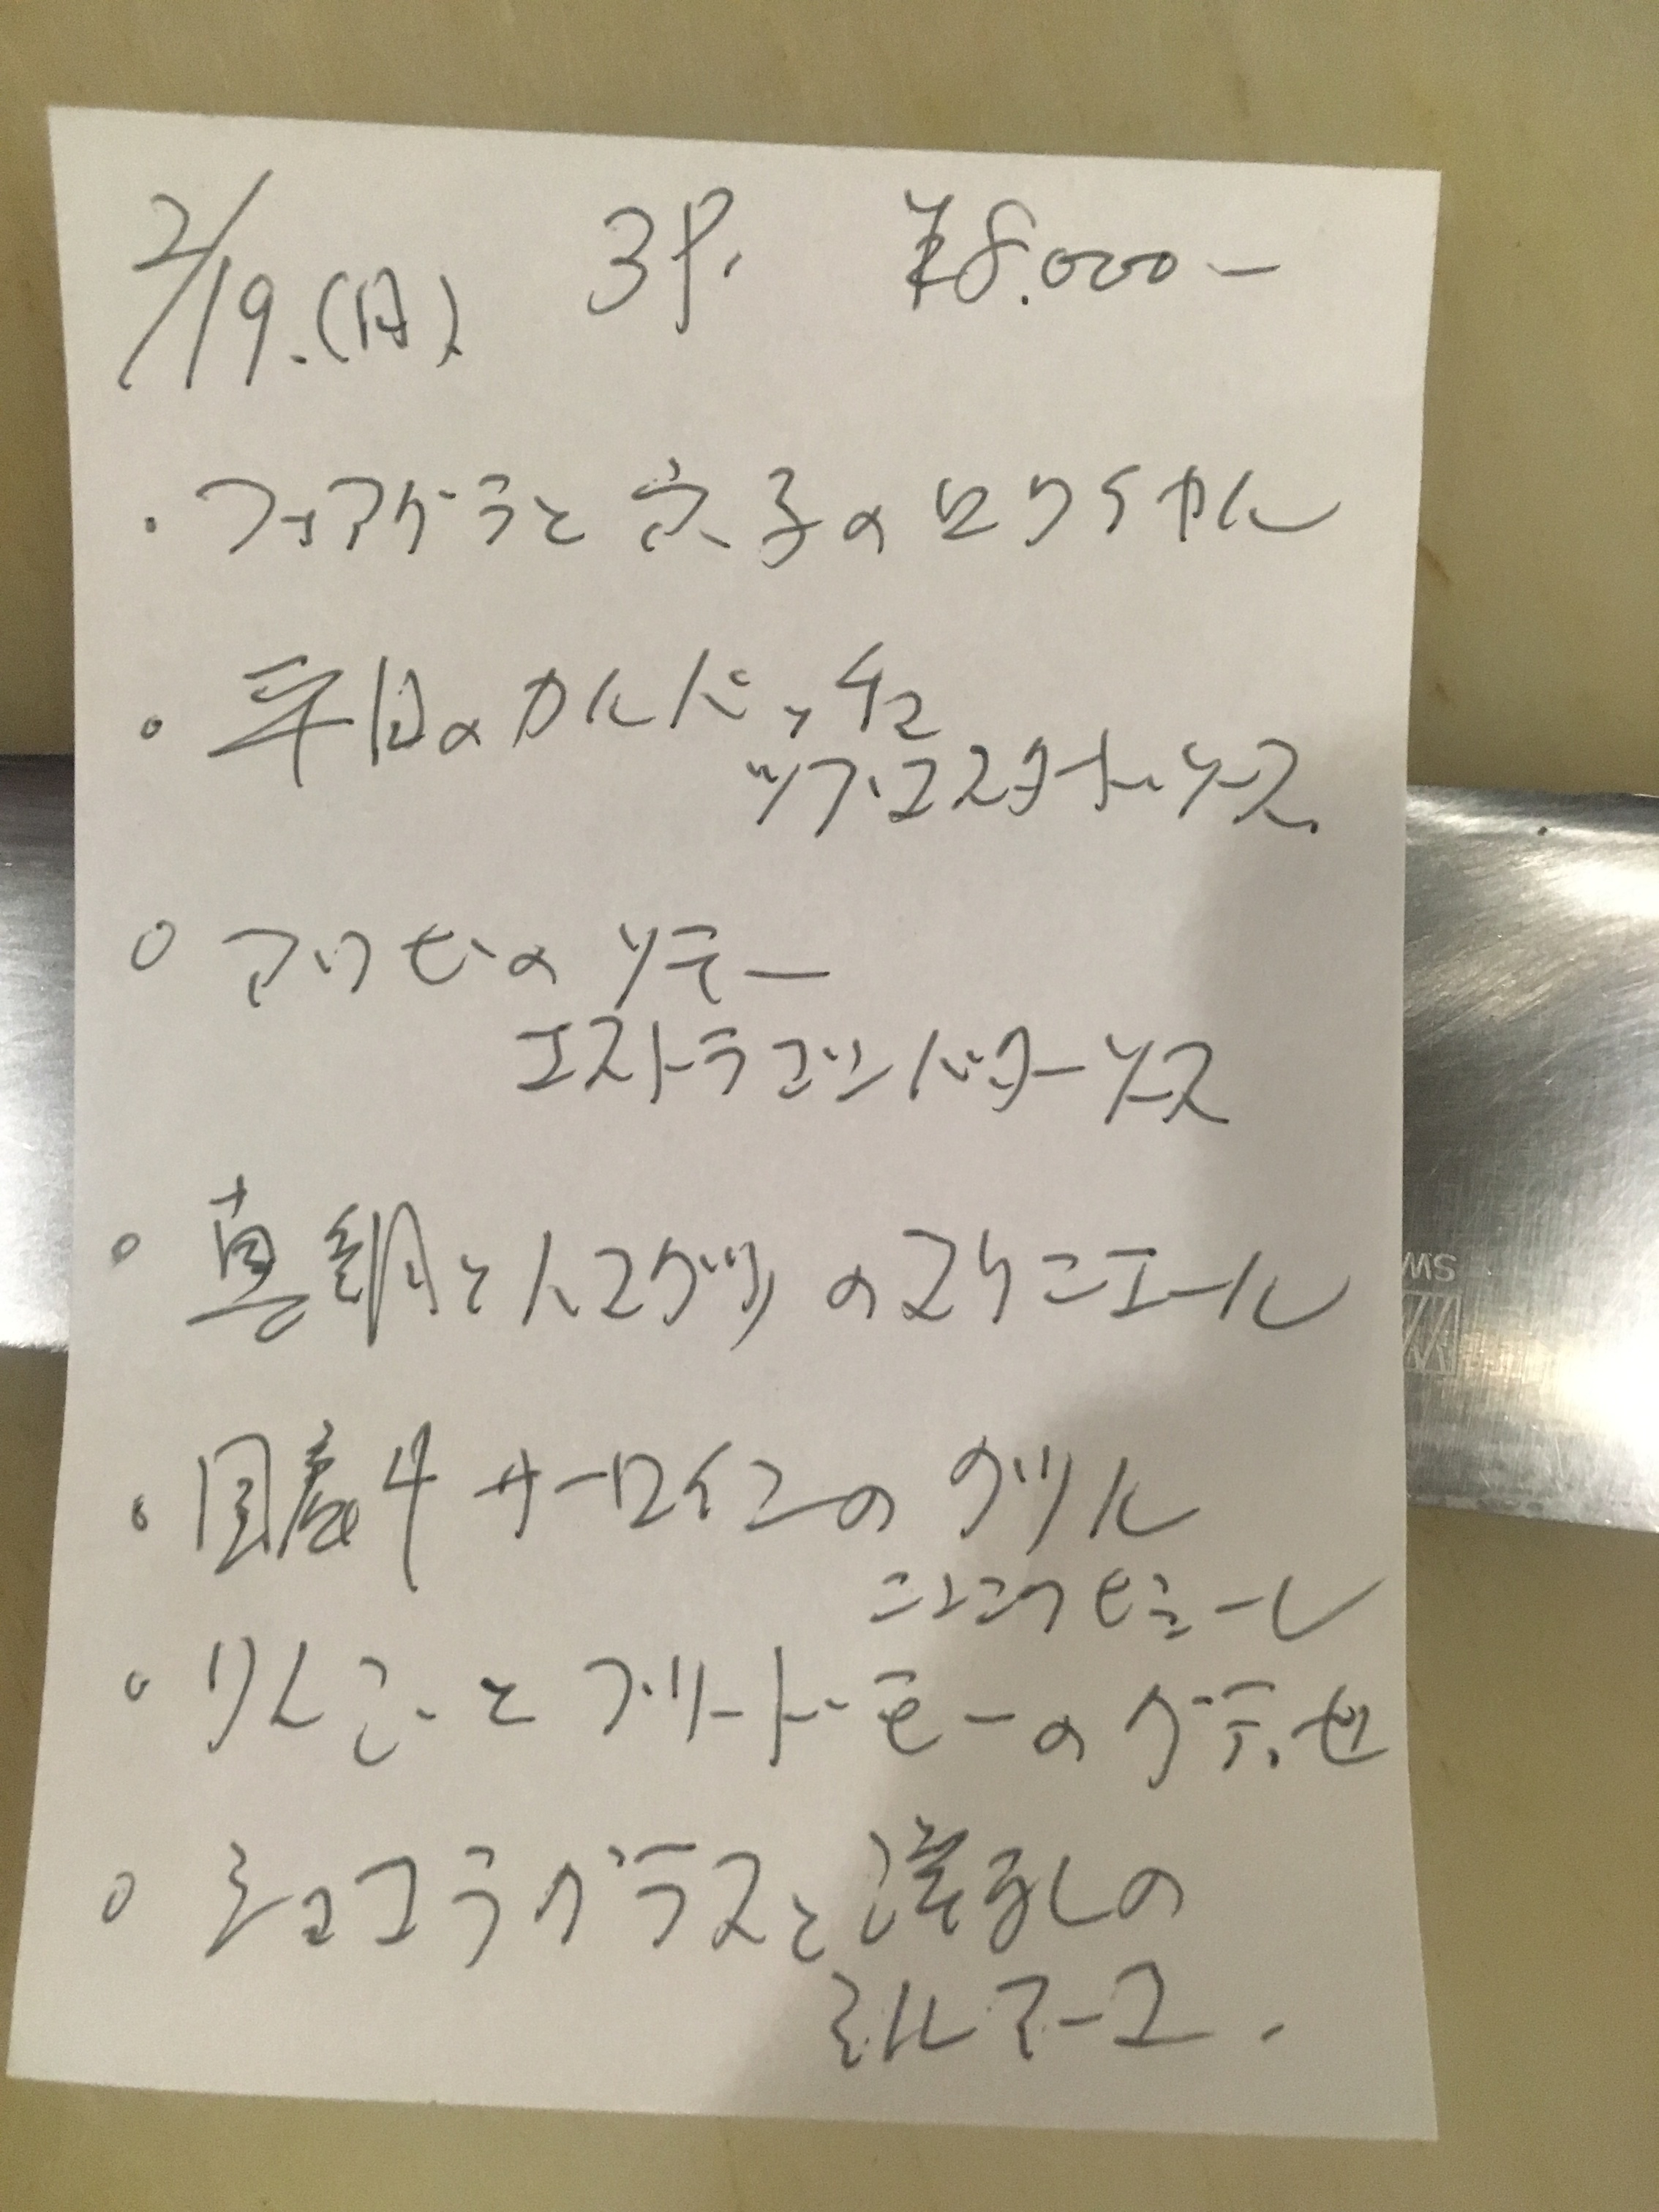 2/19.(日) 3P. ¥8.000-
・フォアグラと穴子のロワイヤル
・平目のカルパッチョ
ソース
・アワビのソテー
エストラゴンバターソース
・真鯛とハマグリのマリニエール
・国産牛サーロインのグリル
ニンニクピューレ
・りんごとブリードモーのグラッセ
・ショコラグラスと洋梨の
ミルフィーユ.